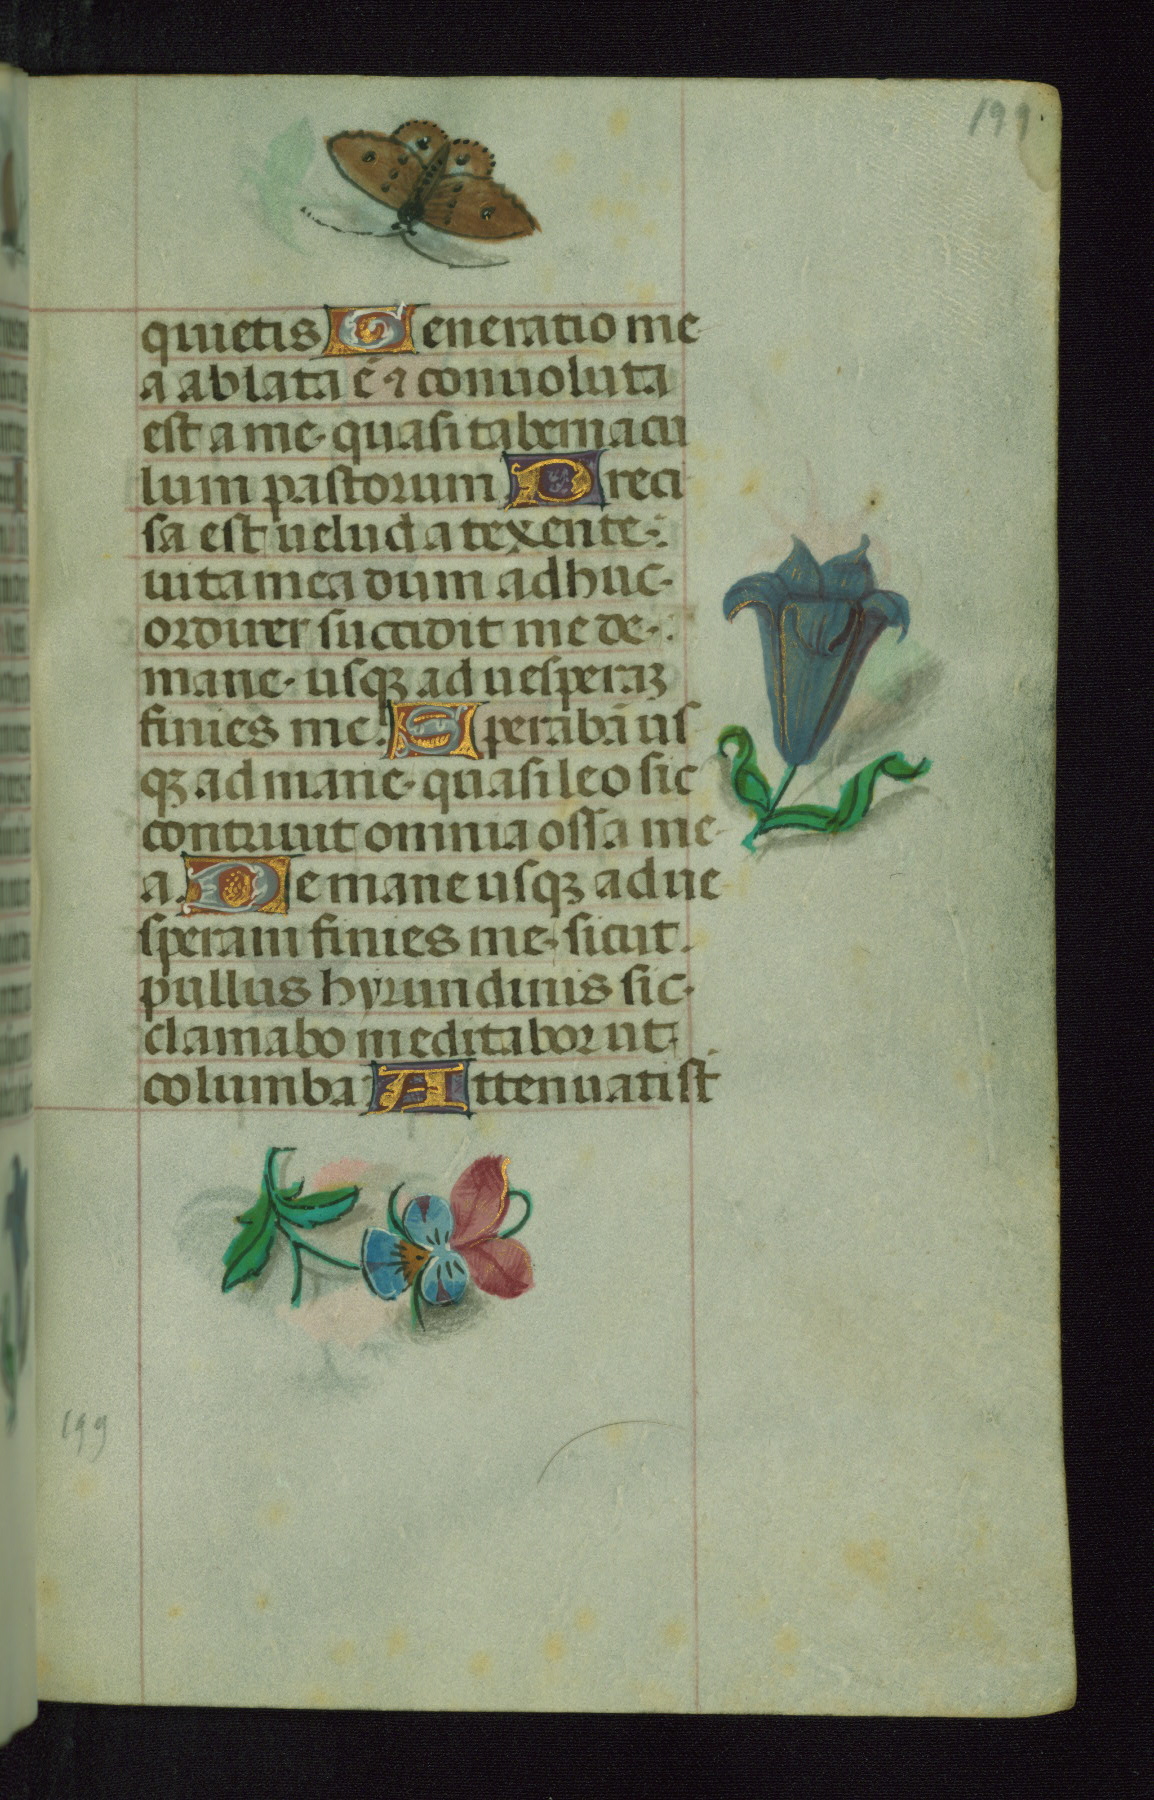 199
quietis Generatio me
a ablata ē ⁊ conuoluta
est a me· quasi tabernacu
lum pastorum Preci
sa est uelud a texente·:
uita mea dum adhuc·
ordirer succidit me de·:
mane· usqꝫ ad uesperaꝫ
finies me· Sperabā us
qꝫ ad mane· quasi leo sic
contriuit omnia ossa me·
a· De mane usqꝫ ad ue
speram finies me· sicut·
pullus hyrundinis sic·
clamabo meditabor ut
columba Attenuati st̄
199